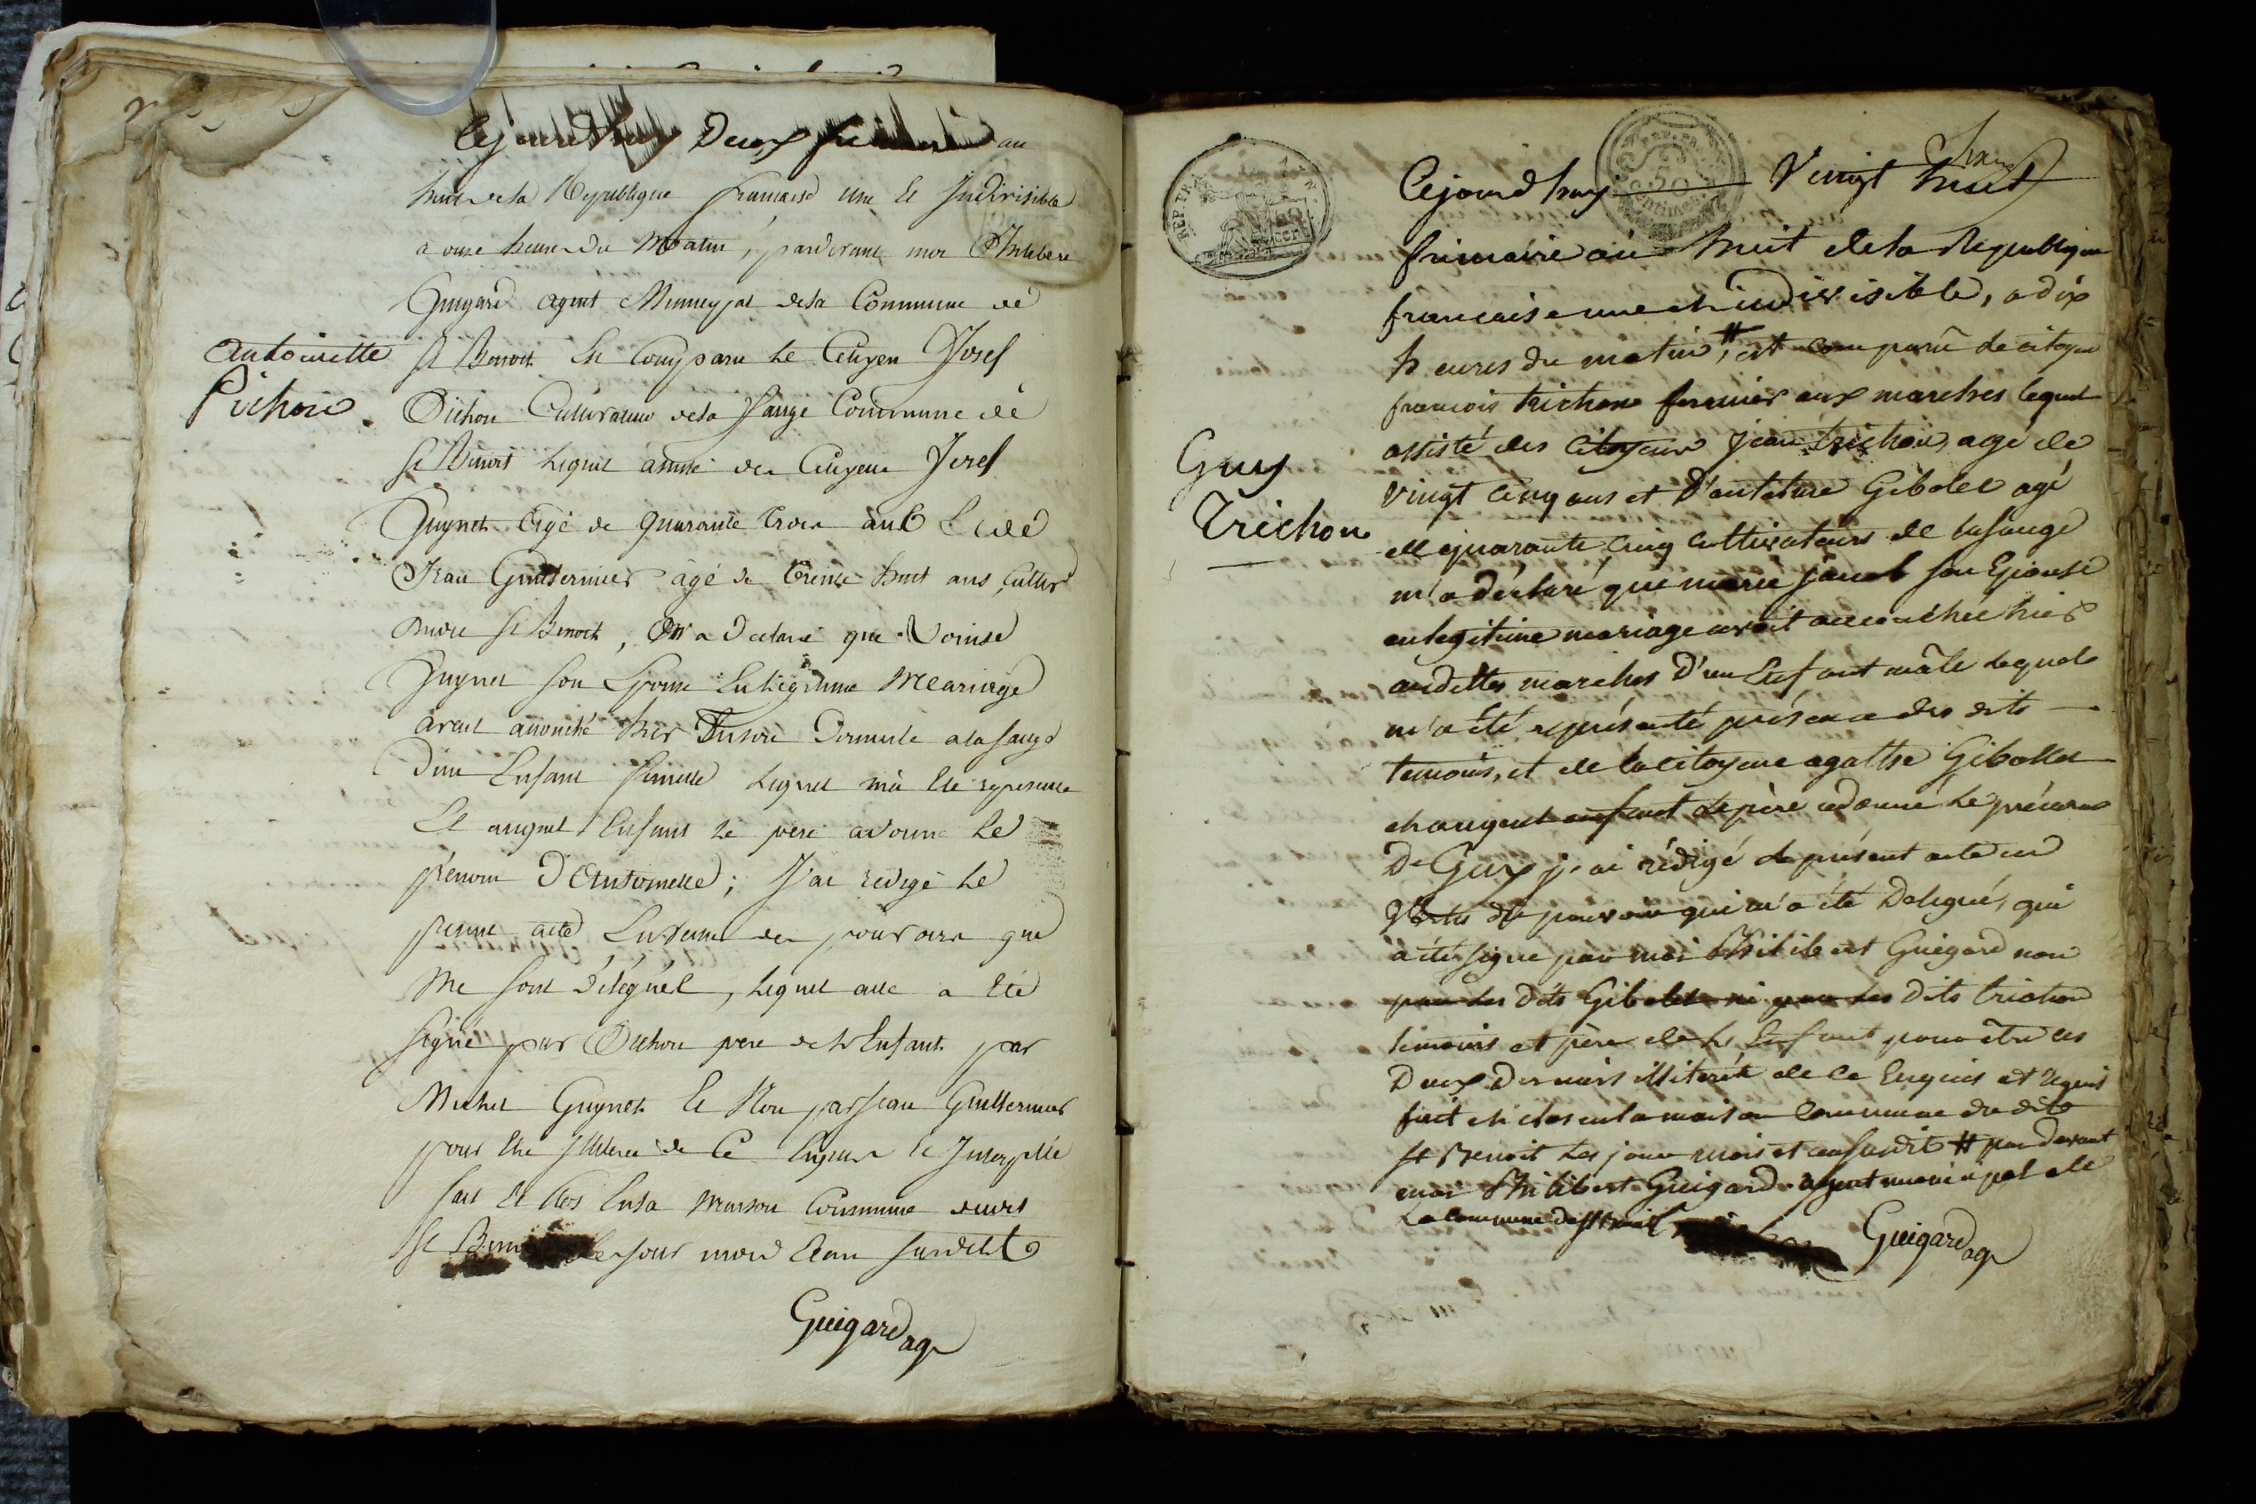 Cejourdhuy Deux frimaire au
huit de la Republique francaise une Et Indivisible
a onze heures du Matin, pardevant moi Philibert
Guigard agent Municypal dela Commune de
St Benoit Est Comparu Le Citoyen Josef
Pichon Cultivateur dela Sauge Commune de
St Benoit Lequel assisté des Citoyens Josef
Guynet Agé de quarante trois ans Et de
Jean Guillermier agé de trente huit ans, Cultiv
St Benoit, M'a Declaré que
Guynet son Epouse En Legitime Meariage
avait accouché hier Dernier a la Sauge
D'un Enfant femelle Lequel m'a Eté representé
Et auquel Enfant Le pere a donné Le
prenom D'Antoinette; J'ai redigé Le
present acte En vertu des pouvoirs que
Me sont délégués, Lequel acte a Eté
Signé par Pichon pere de L'Enfant par
Michel Guynet Et Non par Jean Guillermier
pour Etre Illiteré de Ce Enquis Et Interpellé
fait Et Clos En La Maison Commune dudit
St Benoit Les jour mois Et an susdit
Guigard ag
Antoinette
Pichon
Cejourdhuy Vingt huit
frimaire an huit de la Republique
francaise une et indivisible, a dix
heures du matin, # est comparu le citoyen
francois trichon fermier aux marches lequel
assisté des Citoyens Jean trichon, agé de
vingt cinq ans et D'antoine Gibolet agé
de quarante cinq cultivateurs de la sauge
m'a déclaré que marie son Epouse
en legitime mariage avoit accouchée hier
audittes marches D'un Enfant mâle lequel
m'a été représenté présence des dits
temoins, et de la citoyene agathe Gibollet
et auquel enfant le père a donné le prénom
De Guy j'ai rédigé le présent acte en
Vertu du pouvoir qui m'a été Delegué, qui
a été signé par moi Philibert Guigard non
par les dits Gibolet ni par les dits trichon
témoins et père de L'Enfant pour être les
Deux Derniers illiterés de ce Enquis et Requis
fait et clos en la maison Commune du dit
St Benoit Les jour mois et an susdit # par devant
moi Philibert Guigard agent municipal de
La commune de St Benoit
Guigard ag
Guy
Trichon
REP. FRA.
50
Centimes